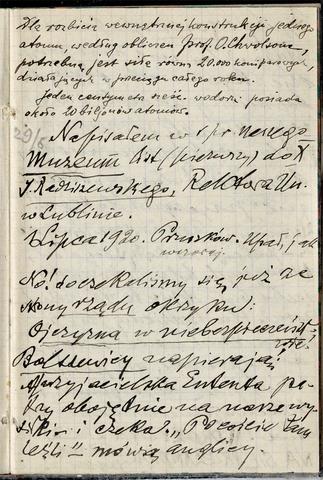 Dla rozbicia wewnętrznej konstrukcji jednego
atomu, według obliczeń prof. O. Chwolsona,
potrzebną jest siła równa 20.000 koni parowych,
działających w przeciągu całego roku.
Jeden centymetr sześc. wodoru posiada
około 20 biljonów atomów.
29/6
Napisałem w spr. nowego
Muzeum list (pierwszy) do X
J. Radziszewskiego, Rektora Un.
w Lublinie.
1 Lipca 1920. Pruszków. Upał, jak
wczoraj.
No! doczekaliśmy się, już ze
strony rządu okrzyku:
Ojczyzna w niebezpieczeńst-
wie!
Bolszewicy napierają!
A przyjacielska Ententa pa-
trzy obojętnie na nasze wy-
siłki i czeka. „Poco ście tam
leźli" mówią anglicy.